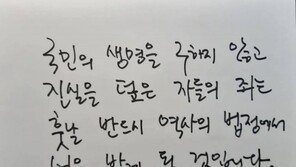 국민의 생명을 구하지 않고
진실을 덮은 자들의 죄는
훗날 반드시 역사의 법정에서
받게 될 것입니다.